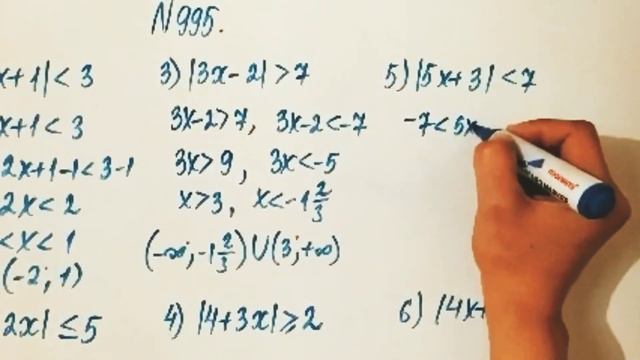 N995.
x+1|<3
x+1<3
2x+1-1<3-1
2x<2
<x<1
(-2; 1)
2x|≤5
3) |3x-2|>7
3x-2>7, 3x-2<-7
3x>9, 3x<-5
x>3, x<-1 2/3
(-∞; -1 2/3)∪(3; +∞)
4) |4+3x|≥2
5) |5x+3|<7
-7<5x
6) |4x+